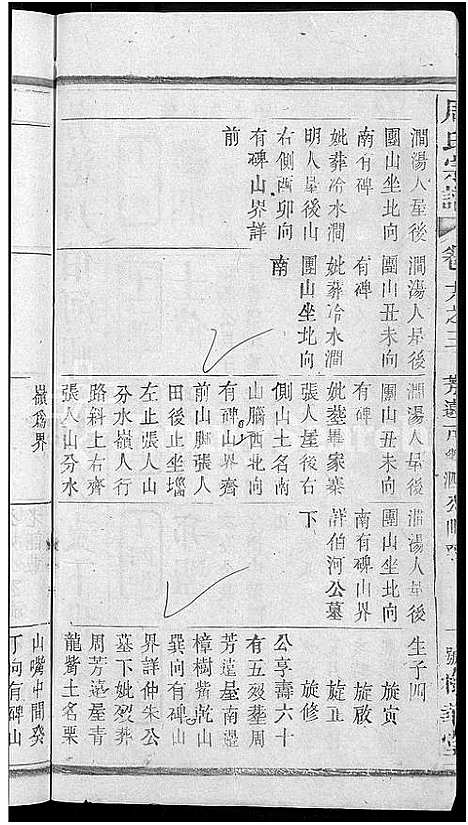 澗湯人屋後
團山坐北向
南有碑
妣葬冷水澗
明人屋後山
右側酉卯向
有碑山界詳
前
澗湯人屋後
團山丑未向
有碑
妣葬冷水澗
團山坐北向
南
澗湯人屋後
團山丑未向
有碑
妣葬畢家寨
張人屋後右
側山土名南
山腦西北向
有碑山界齊
前山腳張人
田後止坐堖
左止張人山
分水嶺人行
路斜上右齊
張人山分水
嶺為界
澗湯人屋後
團山坐北向
南有碑山界
詳伯河公墓
下
生子四
旋寅
旋啟
旋正
旋修
公享壽六十
有五歿塟周
芳遠屋南邊
樟樹觜乾山
巽向有碑山
界詳仲朱公
墓下妣歿葬
周芳遠屋青
龍觜土名栗
山嘴中間癸
丁向有碑山
周氏宗譜
卷六之三
芳遠